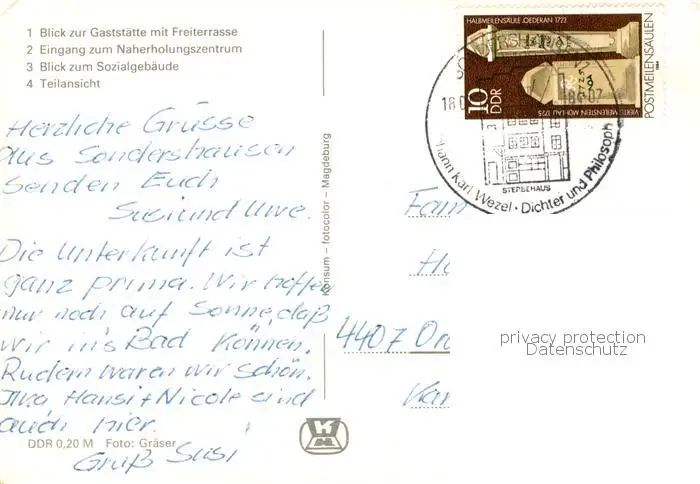 1 Blick zur Gaststätte mit Freiterrasse
2 Eingang zum Naherholungszentrum
3 Blick zum Sozialgebäude
4 Teilansicht
HALBMEILENSÄULE OEDERAN 1722
10
DDR
POSTMEILENSÄULEN
VIERTELMEILENSTEIN MOHLAU 1725
SONDERSHAUSEN
STERBEHAUS
Johann Karl Wezel · Dichter und Philosoph
Herzliche Grüsse
aus Sondershausen
senden Euch
Susi und Uwe.
Die Unterkunft ist
ganz prima. Wir hoffen
nur noch auf Sonne, daß
wir ins Bad können.
Rudern waren wir schon.
Ilka Hansi + Nicole sind
auch hier.
Gruß Susi
Konsum – fotocolor – Magdeburg
Fam
4407
privacy protection
Datenschutz
DDR 0,20 M Foto: Gräser